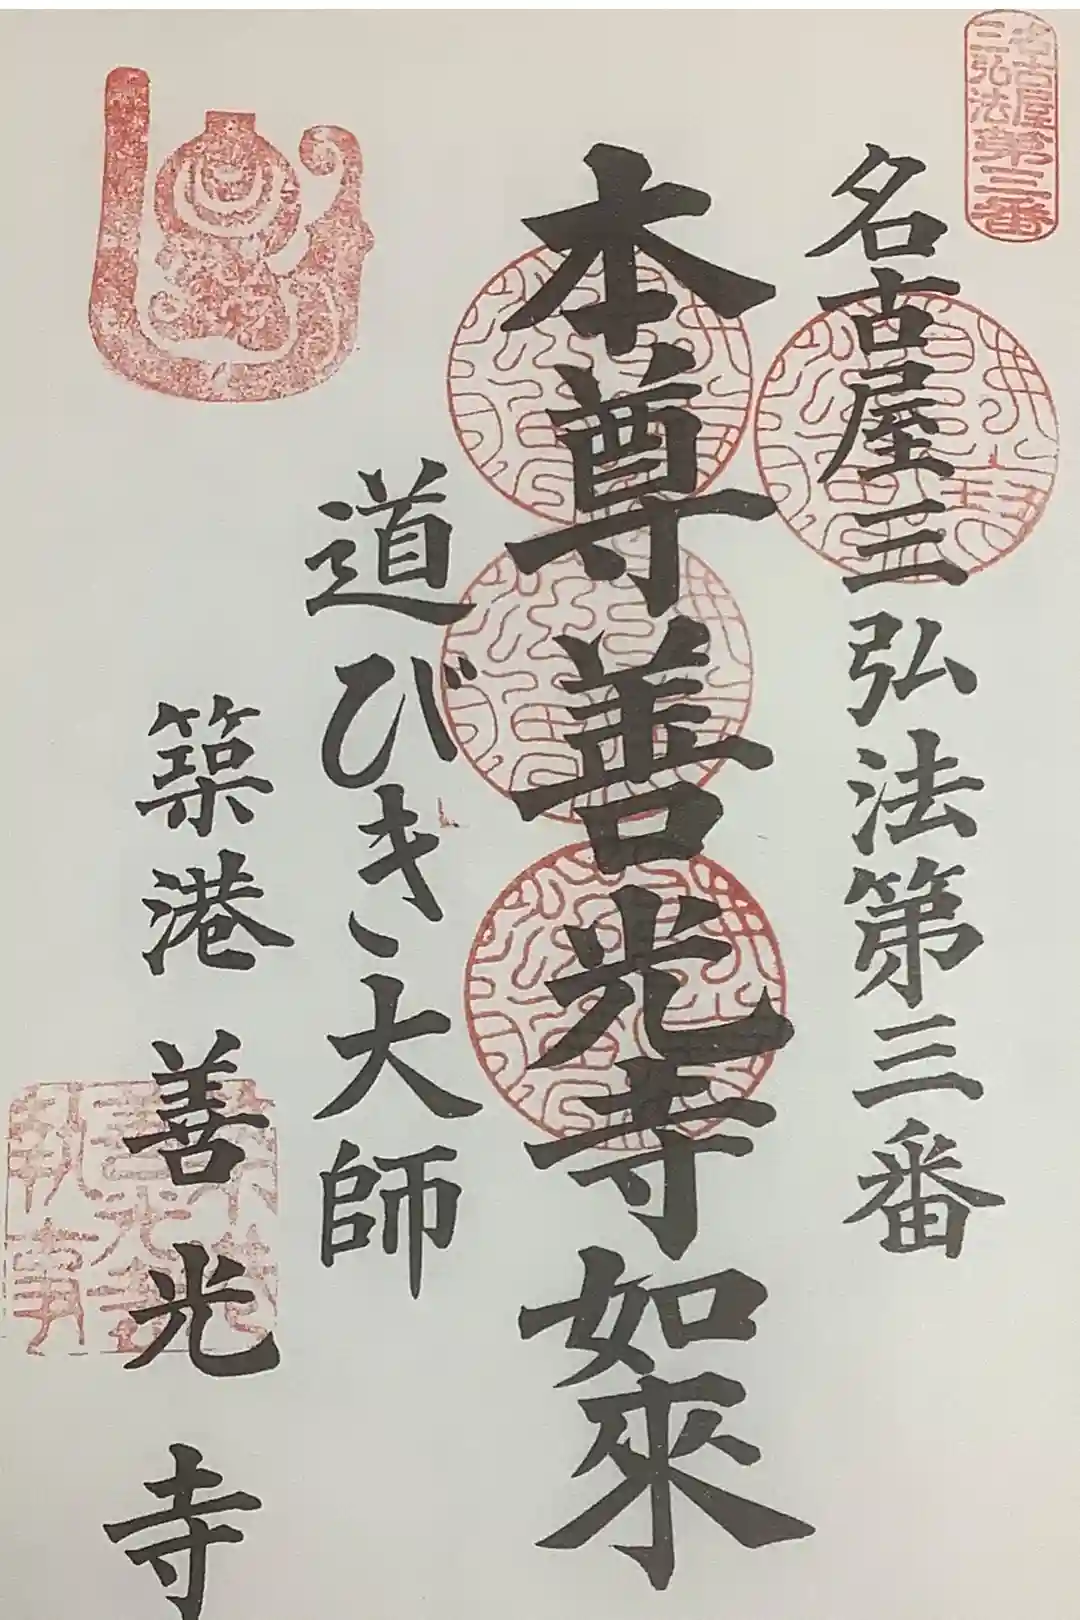 名古屋
三弘法第三番
名古屋三弘法第三番
本尊善光寺如來
道びき大師
築港善光寺